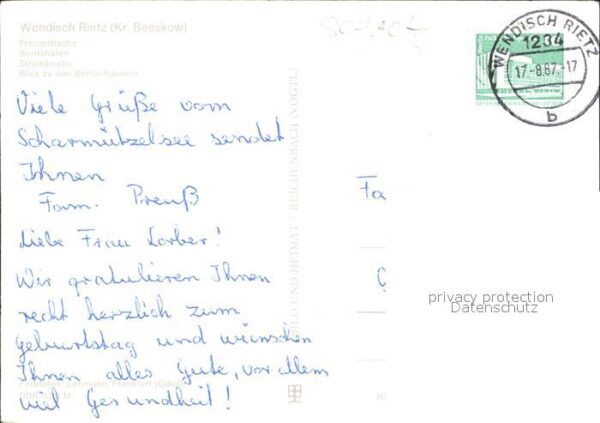 Wendisch Rietz (Kr. Beeskow)
Freizeitfläche
Bootshafen
Strandhotel
Blick zu den Bettenhäusern
WENDISCH RIETZ
1234
17.-8.87.-17
b
Viele Grüße vom
Scharmützelsee sendet
Ihnen
Fam. Preuß
Liebe Frau Korber!
Wir gratulieren Ihnen
recht herzlich zum
Geburtstag und wünschen
Ihnen alles Gute, vor allem
viel Gesundheit!
BILD UND HEIMAT REICHENBACH (VOGTL)
Fa
privacy protection
Datenschutz